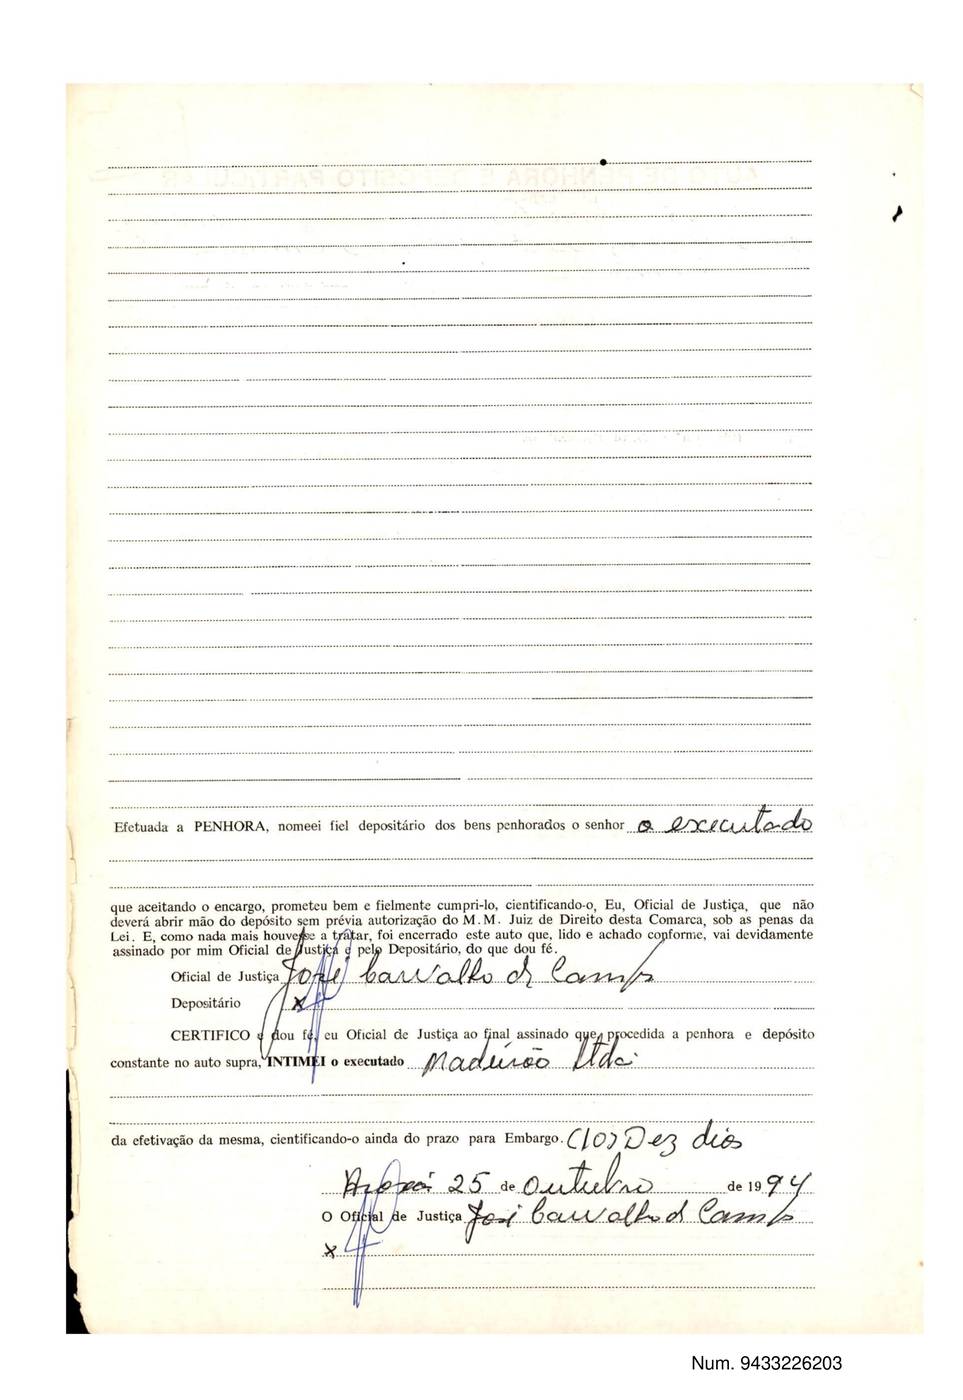 Efetuada a PENHORA, nomeei fiel depositário dos bens penhorados o senhor o executado
que aceitando o encargo, prometeu bem e fielmente cumpri-lo, cientificando-o, Eu, Oficial de Justiça, que não
deverá abrir mão do depósito sem prévia autorização do M.M. Juiz de Direito desta Comarca, sob as penas da
Lei. E, como nada mais houvesse a tratar, foi encerrado este auto que, lido e achado conforme, vai devidamente
assinado por mim Oficial de Justiça e pelo Depositário, do que dou fé.
Oficial de Justiça José Carvalho d Campos
Depositário x
CERTIFICO e dou fé, eu Oficial de Justiça ao final assinado que, procedida a penhora e depósito
constante no auto supra, INTIMEI o executado Madeirão Ltda
da efetivação da mesma, cientificando-o ainda do prazo para Embargo. (10) Dez dias
25 de Outubro de 1994
O Oficial de Justiça José Carvalho d Campos
x
Num. 9433226203